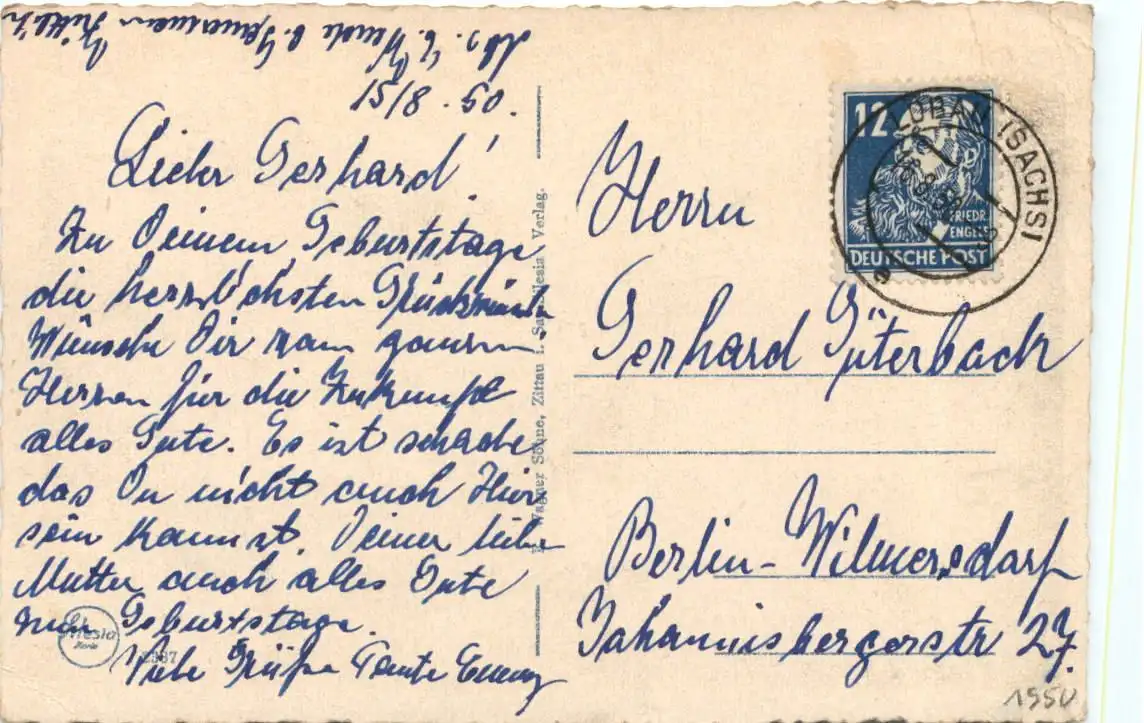 15/8. 50.
Lieber Gerhard!
Zu Deinem Geburtstage
die herzlichsten Glückwünsche
Wünsche Dir vom ganzen
Herzen für die Zukunft
alles Gute. Es ist schade
das Du nicht auch Hier
sein kannst. Deiner lieben
Mutter auch alles Gute
zum Geburtstage.
Viele Grüße Tante Emmy
Wagner Söhne, Zittau i. Sa. Silesia Verlag.
Silesia
Karte
2987
12
FRIEDR.
ENGELS
DEUTSCHE POST
LÖBAU (SACHS)
Herrn
Gerhard Güterbach
Berlin-Wilmersdorf
Johannisbergerstr 27.
1950